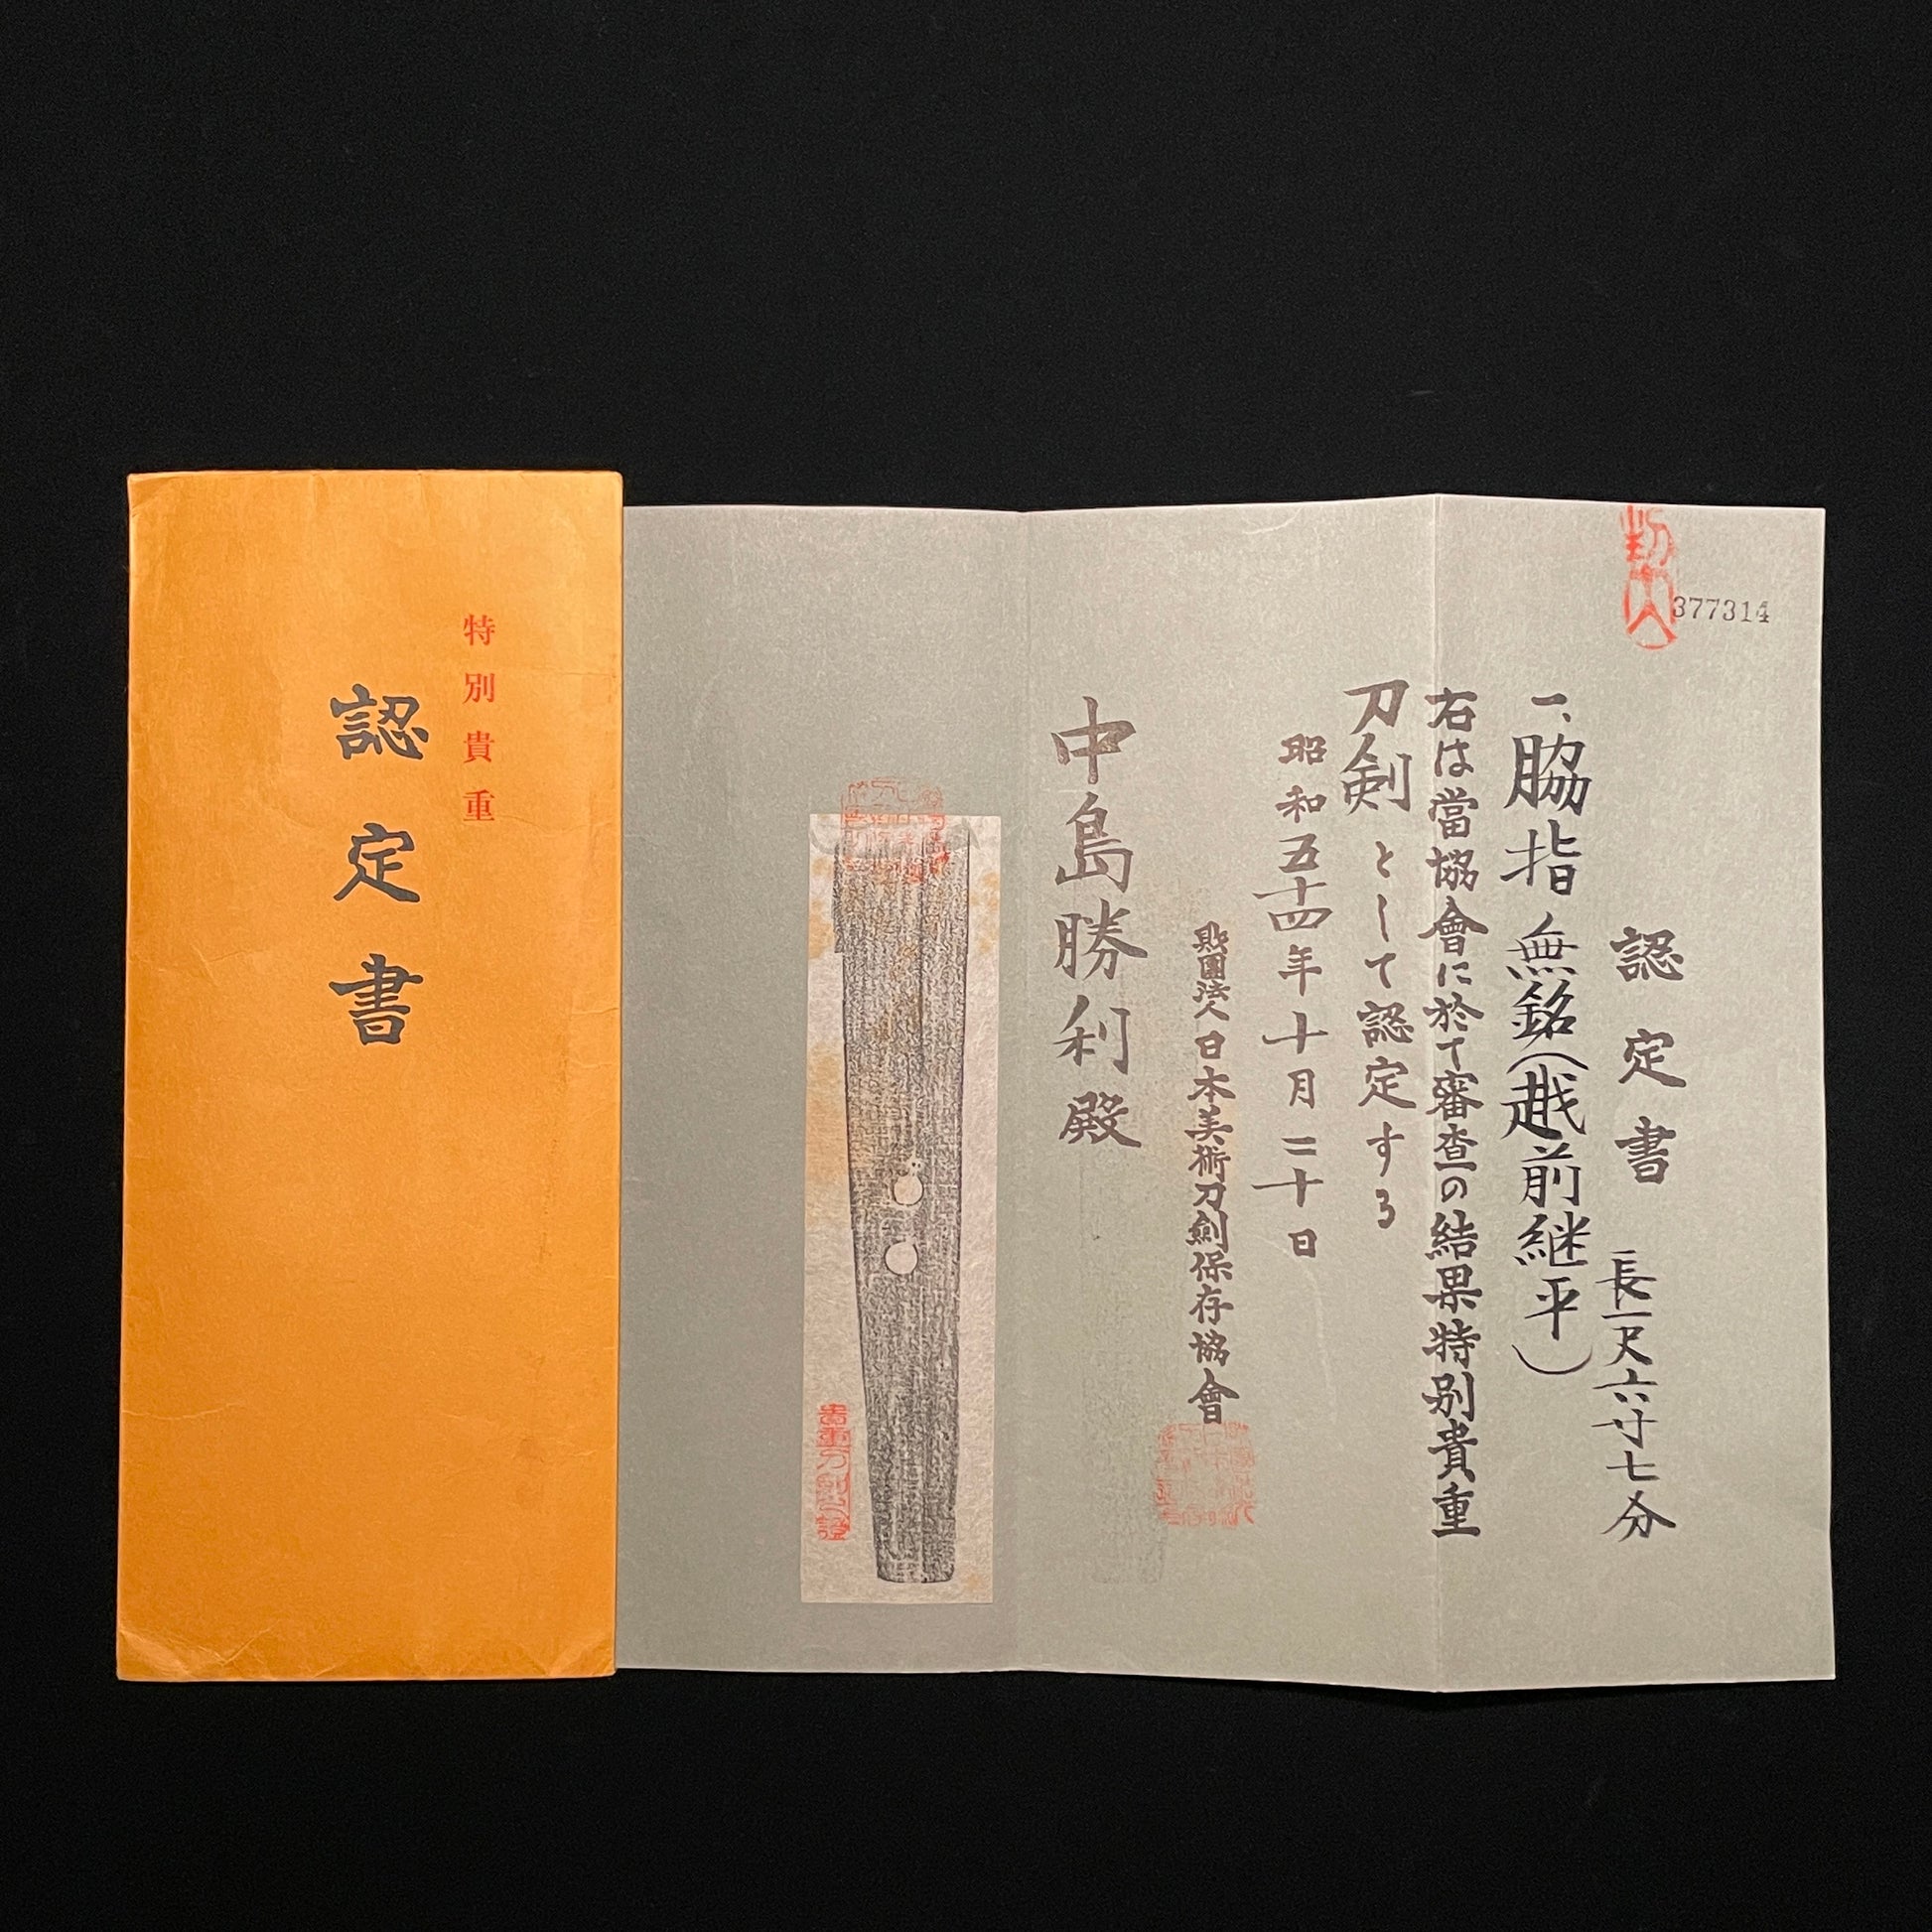 377314
認定書
長一尺六寸七分
一、脇指 無銘(越前継平)
右は當協會に於て審査の結果特別貴重
刀剣として認定する
昭和五十四年十月二十日
財團法人日本美術刀劍保存協會
中島勝利殿
貴重刀剣之證
特別貴重
認定書